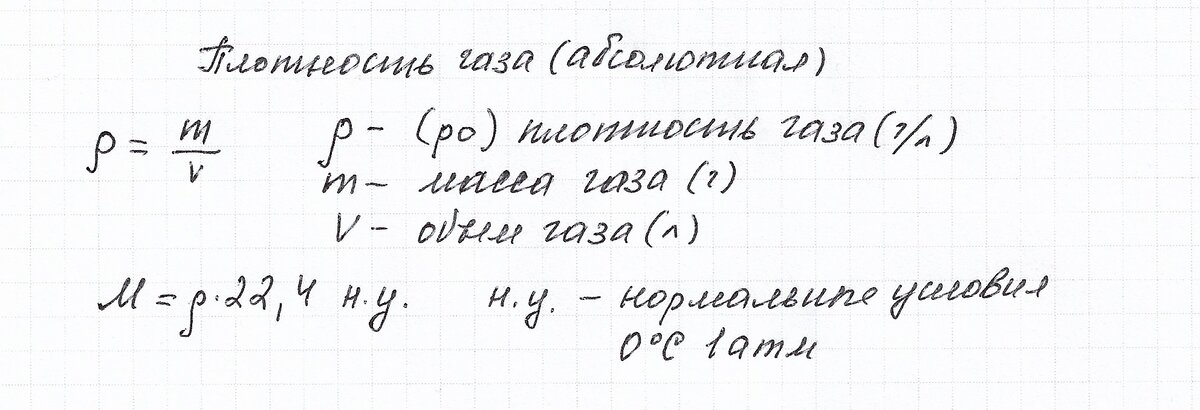 Плотность газа (абсолютная)
ρ = m/v ρ – (ро) плотность газа (г/л)
m – масса газа (г)
V – объем газа (л)
M = ρ·22,4 н.у. н.у. – нормальные условия
0°C 1 атм